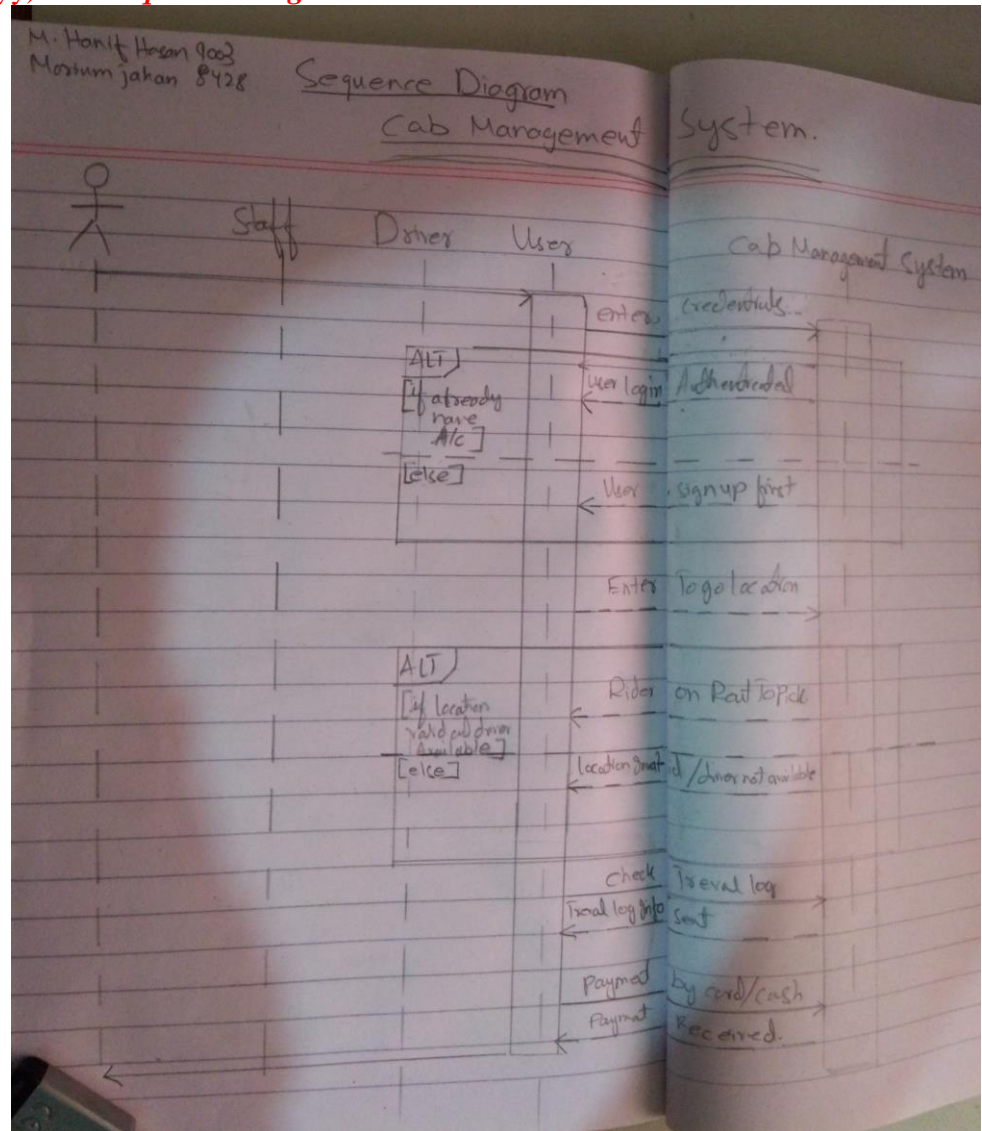 M. Hanif Hasan 9003
Moriumjahan 8428
Sequence Diagram
Cab Management System.
Staff Driver User Cab Management System
enter credentials
ALT
User login Authenticated
[if already
have
A/c]
[else]
User signup first
Enter To go location
ALT
[if location
valid and driver
Available]
Rider on Rout To Pick
[else]
location /driver not available
Check Treval log
log Info sent
by card/cash
Received.